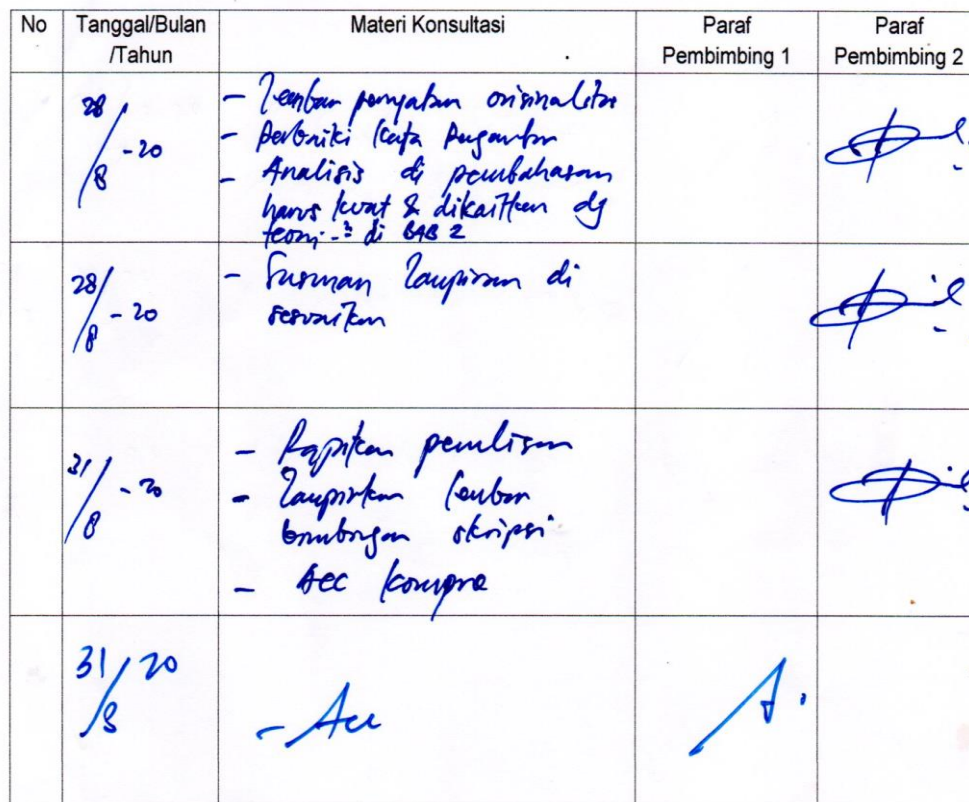 No Tanggal/Bulan/Tahun Materi Konsultasi Paraf Pembimbing 1 Paraf Pembimbing 2
28/8 -20
- Lembar pernyataan orisinalitas
- Perbaiki Kata Pengantar
- Analisis di pembahasan
harus kuat & dikaitkan dg
teori-2 di BAB 2
28/8 -20
- Susunan Lampiran di
sesuaikan
31/8 -20
- Rapikan penulisan
- Lampirkan lembar
bimbingan skripsi
- Acc kompre
31/8 20
- Acc